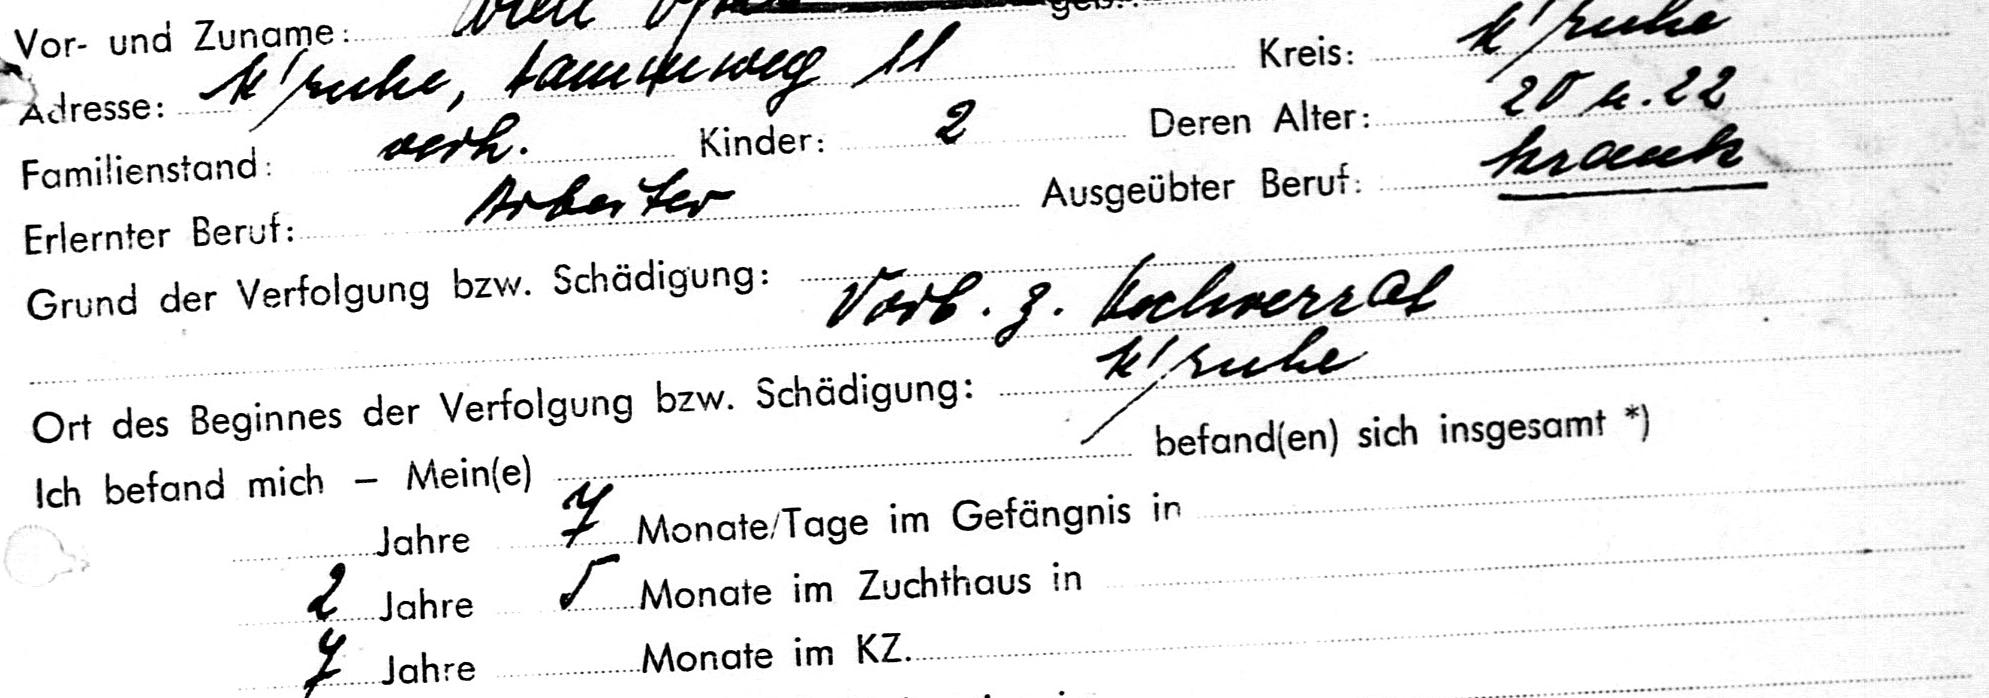 Vor- und Zuname: geb.:
Adresse: K'ruhe, weg 11 Kreis: K'ruhe
Familienstand: verh. Kinder: 2 Deren Alter: 20 u. 22
Erlernter Beruf: Arbeiter Ausgeübter Beruf: krank
Grund der Verfolgung bzw. Schädigung: Vorb. z. Hochverrat
Ort des Beginnes der Verfolgung bzw. Schädigung: K'ruhe
Ich befand mich – Mein(e) befand(en) sich insgesamt *)
Jahre 7 Monate/Tage im Gefängnis in
2 Jahre 5 Monate im Zuchthaus in
7 Jahre Monate im KZ.